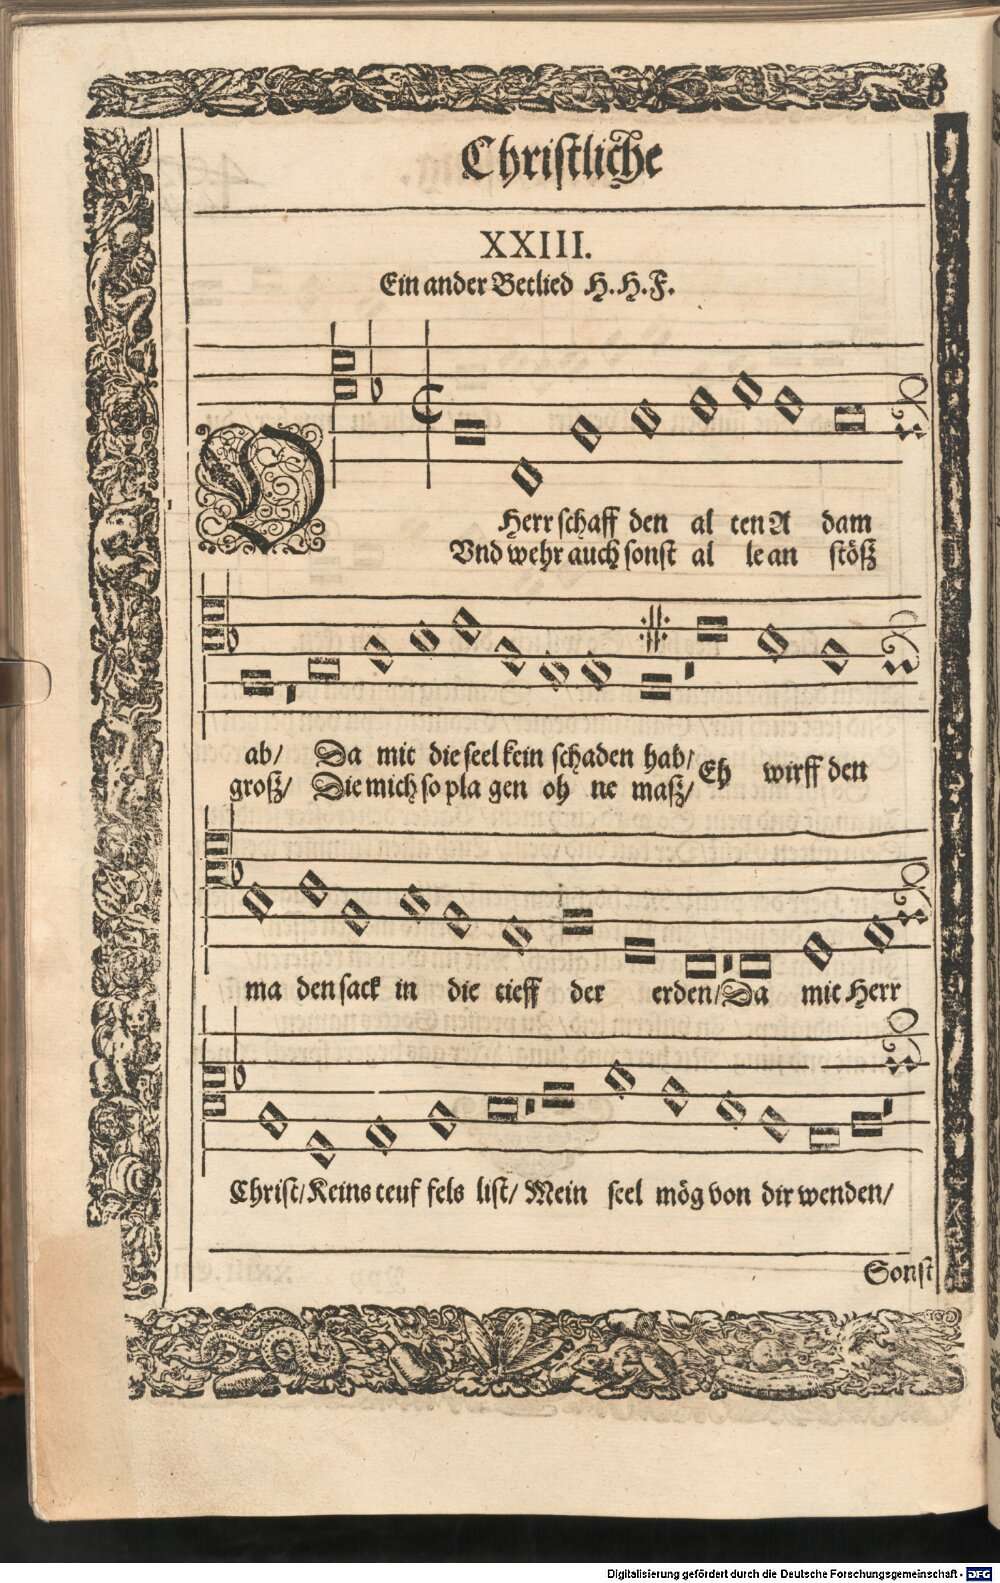 Christliche
XXIII.
Ein ander Betlied H. H. F.
O Herr schaff den al ten A dam
Vnd wehr auch sonst al le an stöß
ab/ Da mit die seel kein schaden hab/ Eh wirff den
groß/ Die mich so pla gen oh ne maß/
ma den sack in die tieff der erden/ Da mit Herr
Christ/ Keins teuf fels list/ Mein seel mög von dir wenden/
Sonst
Digitalisierung gefördert durch die Deutsche Forschungsgemeinschaft - DFG